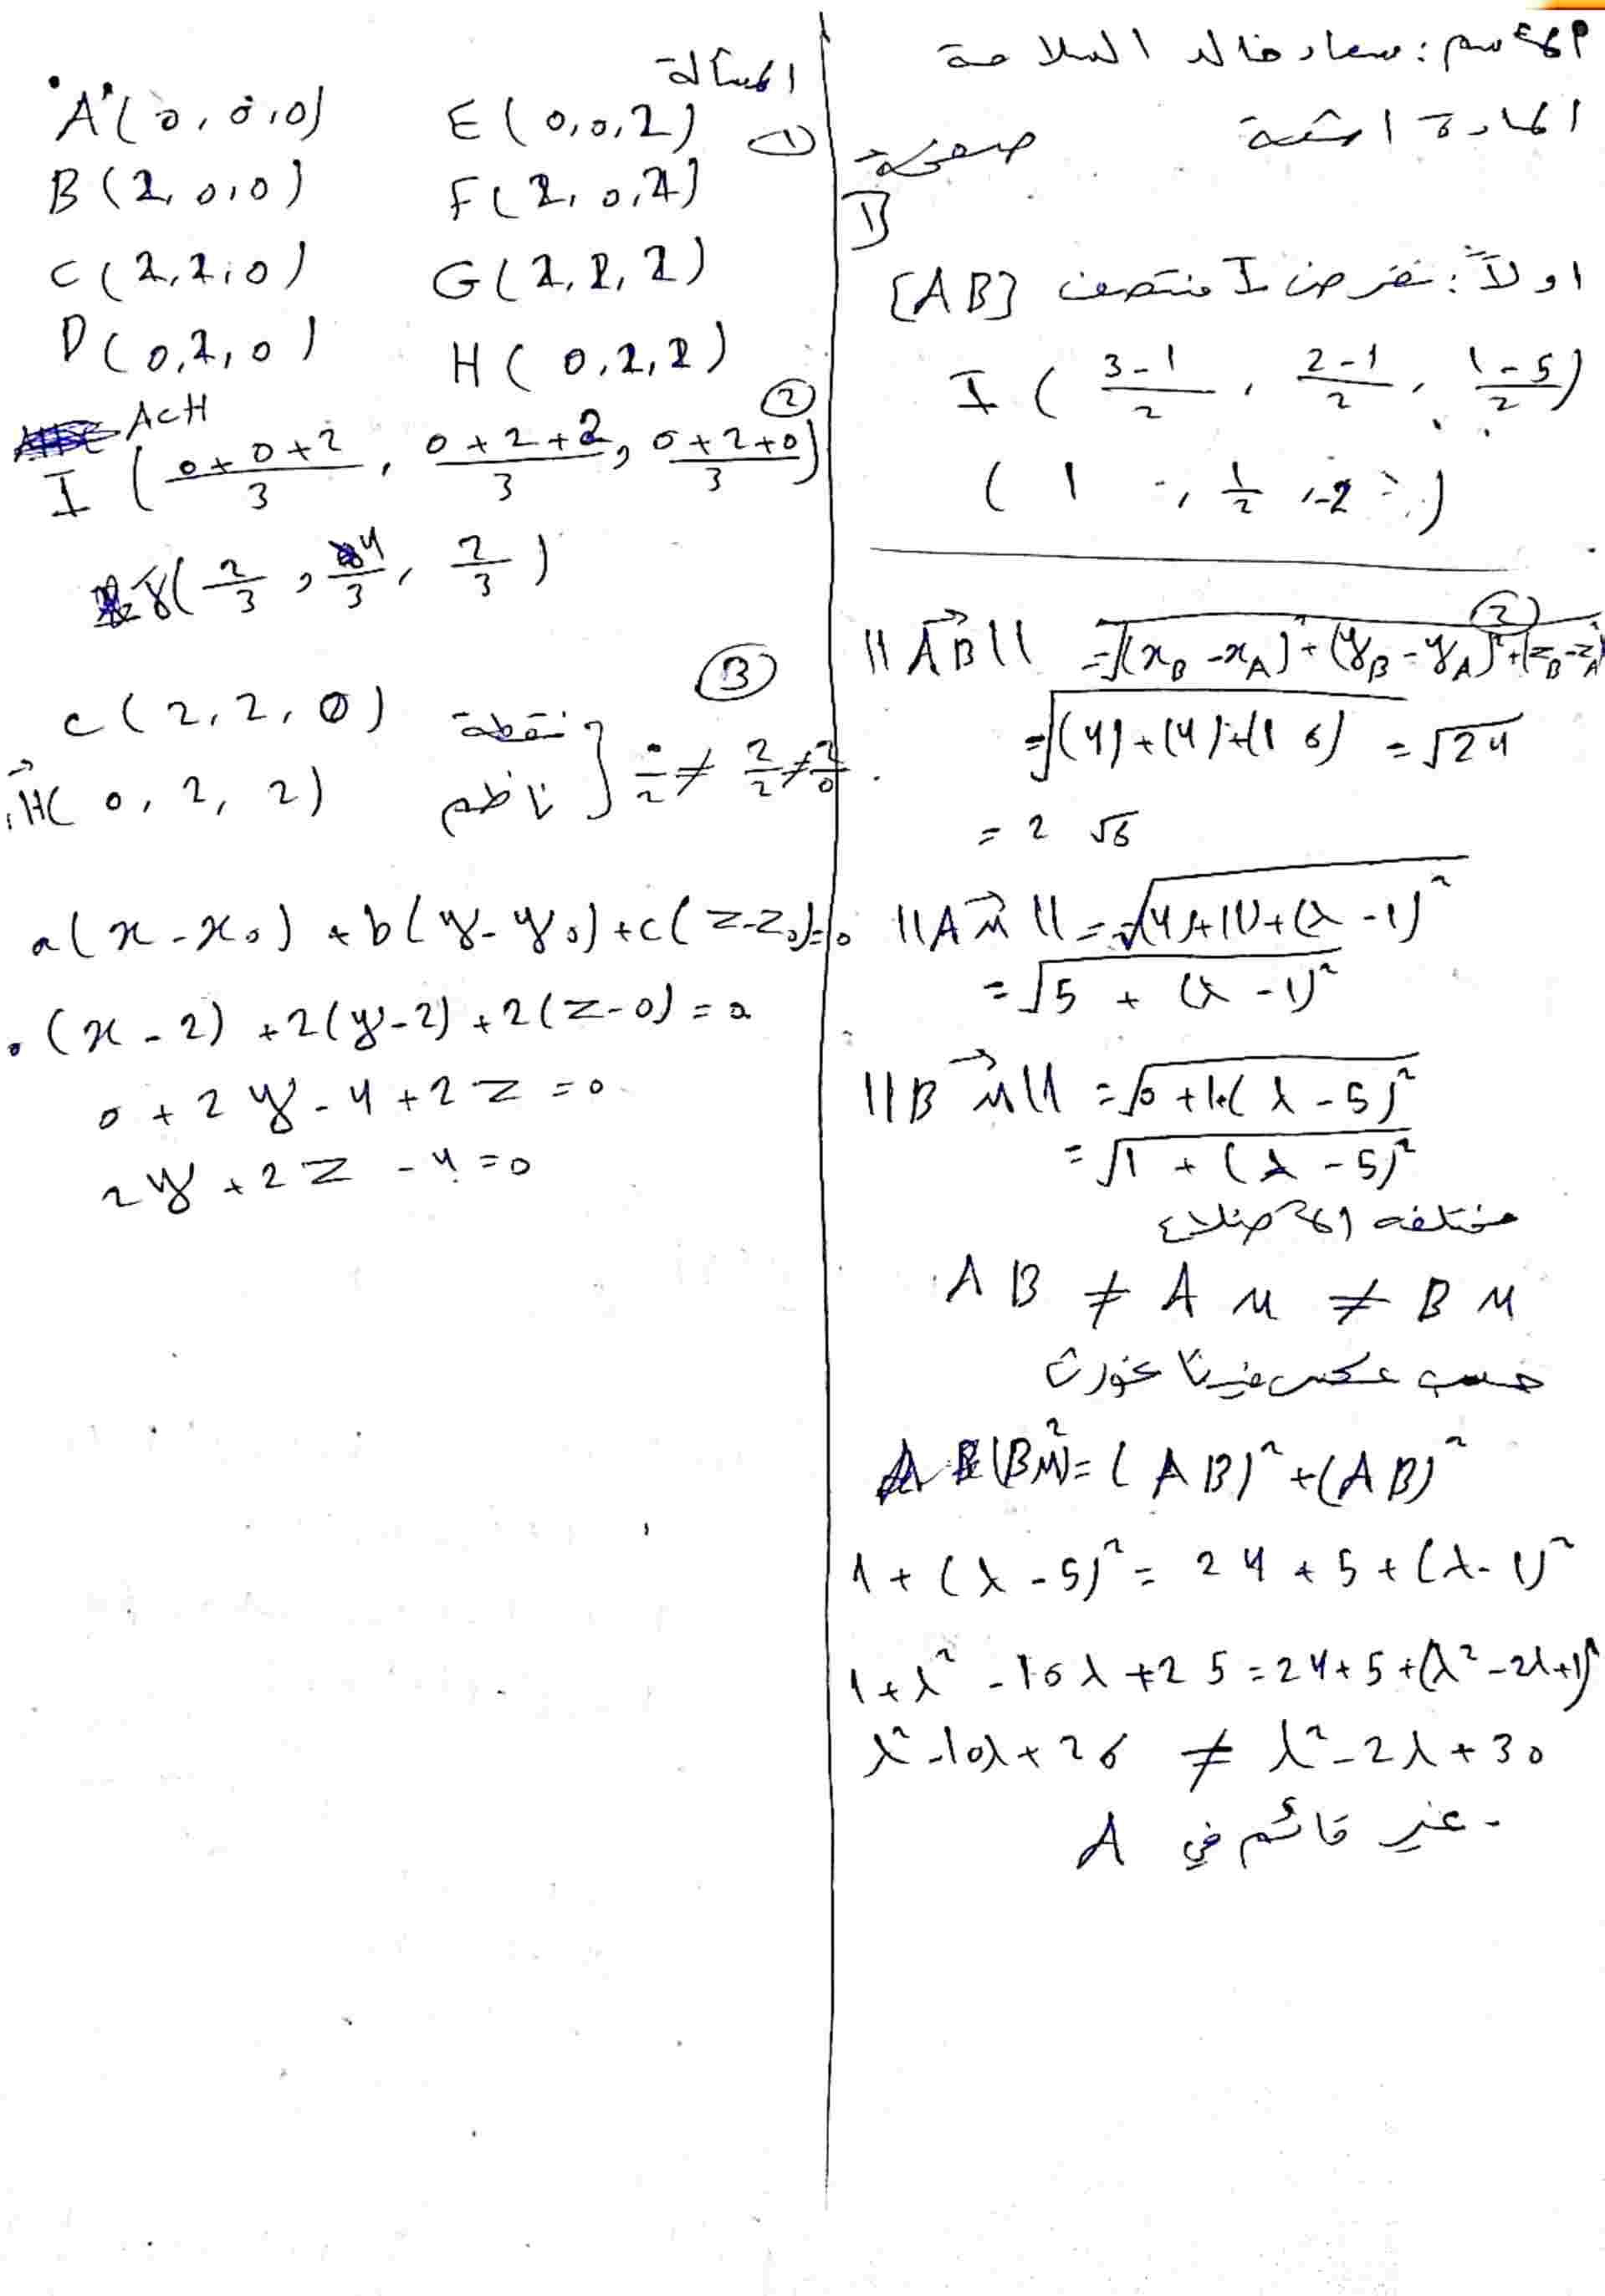 الاسم : سعاد خالد السلامة
المادة اشعة
صفحة 1
اولاً : نفرض I منتصف [AB]
I ( 3-1/2 , 2-1/2 , 1-5/2 )
( 1 , 1/2 , -2 )
②
||AB|| = √(x_B - x_A)² + (y_B - y_A)² + (z_B - z_A)²
= √(4) + (4) + (16) = √24
= 2 √6
||AM|| = √(4) + (1) + (λ - 1)²
= √5 + (λ - 1)²
||BM|| = √0 + 1 + (λ - 5)²
= √1 + (λ - 5)²
مختلفه الاضلاع
AB ≠ AM ≠ BM
حسب عكس فيثاغورث
(BM)² = (AB)² + (AB)²
1 + (λ - 5)² = 24 + 5 + (λ - 1)²
1 + λ² - 10λ + 25 = 24 + 5 + (λ² - 2λ + 1)²
λ² - 10λ + 26 ≠ λ² - 2λ + 30
- غير قائم في A
المسألة
①
A(0, 0, 0) E(0, 0, 2)
B(2, 0, 0) F(2, 0, 2)
C(2, 2, 0) G(2, 2, 2)
D(0, 2, 0) H(0, 2, 2)
②
ACH
I ( 0+0+2/3 , 0+2+2/3 , 0+2+0/3 )
( 2/3 , 4/3 , 2/3 )
③
C(2, 2, 0) نقطة
H(0, 2, 2) ناظم } 0/2 ≠ 2/2 ≠ 2/0
a(x - x₀) + b(y - y₀) + c(z - z₀) = 0
0(x - 2) + 2(y - 2) + 2(z - 0) = 0
0 + 2y - 4 + 2z = 0
2y + 2z - 4 = 0